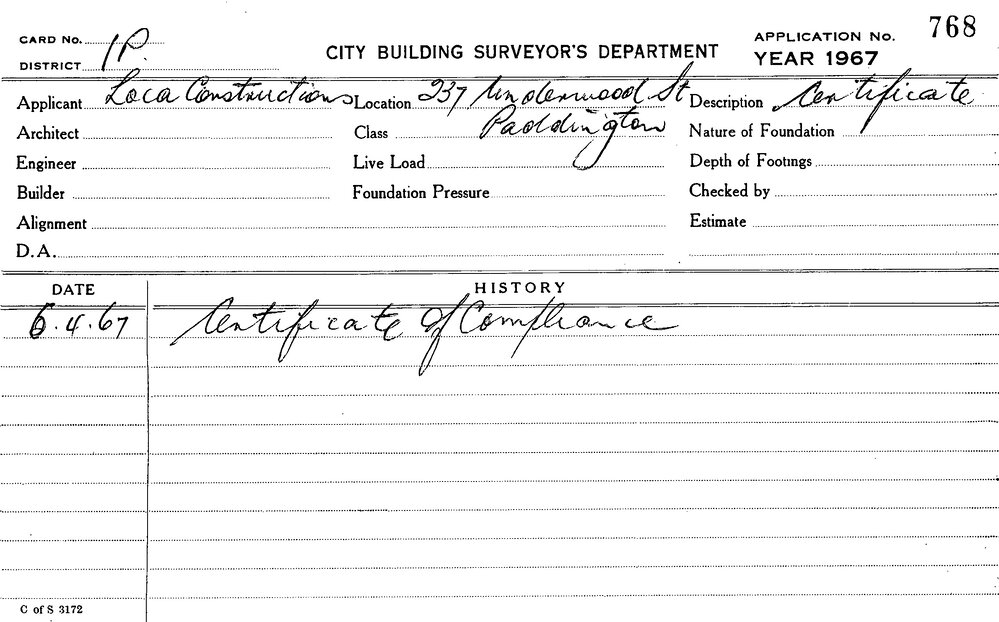 CARD No. 1P.
DISTRICT
CITY BUILDING SURVEYOR'S DEPARTMENT
APPLICATION No. 768
YEAR 1967
Applicant Loca Constructions Location 237 Underwood St Description Certificate
Architect Class Paddington Nature of Foundation
Engineer Live Load Depth of Footings
Builder Foundation Pressure Checked by
Alignment Estimate
D.A.
DATE HISTORY
6.4.67 Certificate of Compliance
C of S 3172